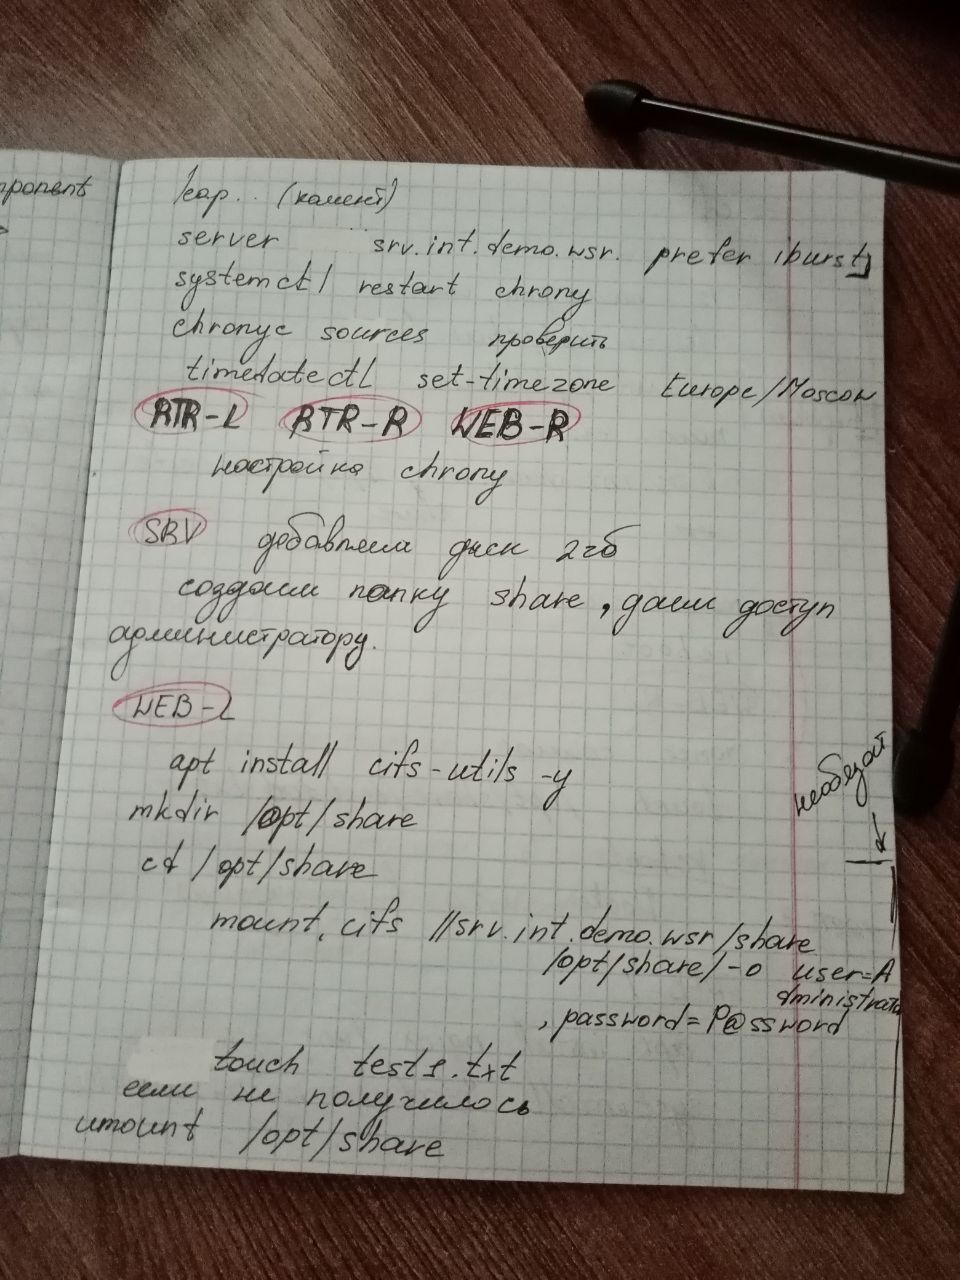 mponent
(комент)
server srv.int.demo.wsr. prefer iburst
systemctl restart chrony
chronyc sources проверить
timedatectl set-timezone Europe/Moscow
RTR-L RTR-R WEB-R
настройка chrony
SRV добавляем диск 2гб
создаем папку share, даем доступ
администратору.
WEB-L
apt install cifs-utils -y
необязат
mkdir /opt/share
cd /opt/share
mount.cifs //srv.int.demo.wsr/share
/opt/share/ -o user=A
dministrato
, password=P@ssword
touch test1.txt
если не получилось
umount /opt/share